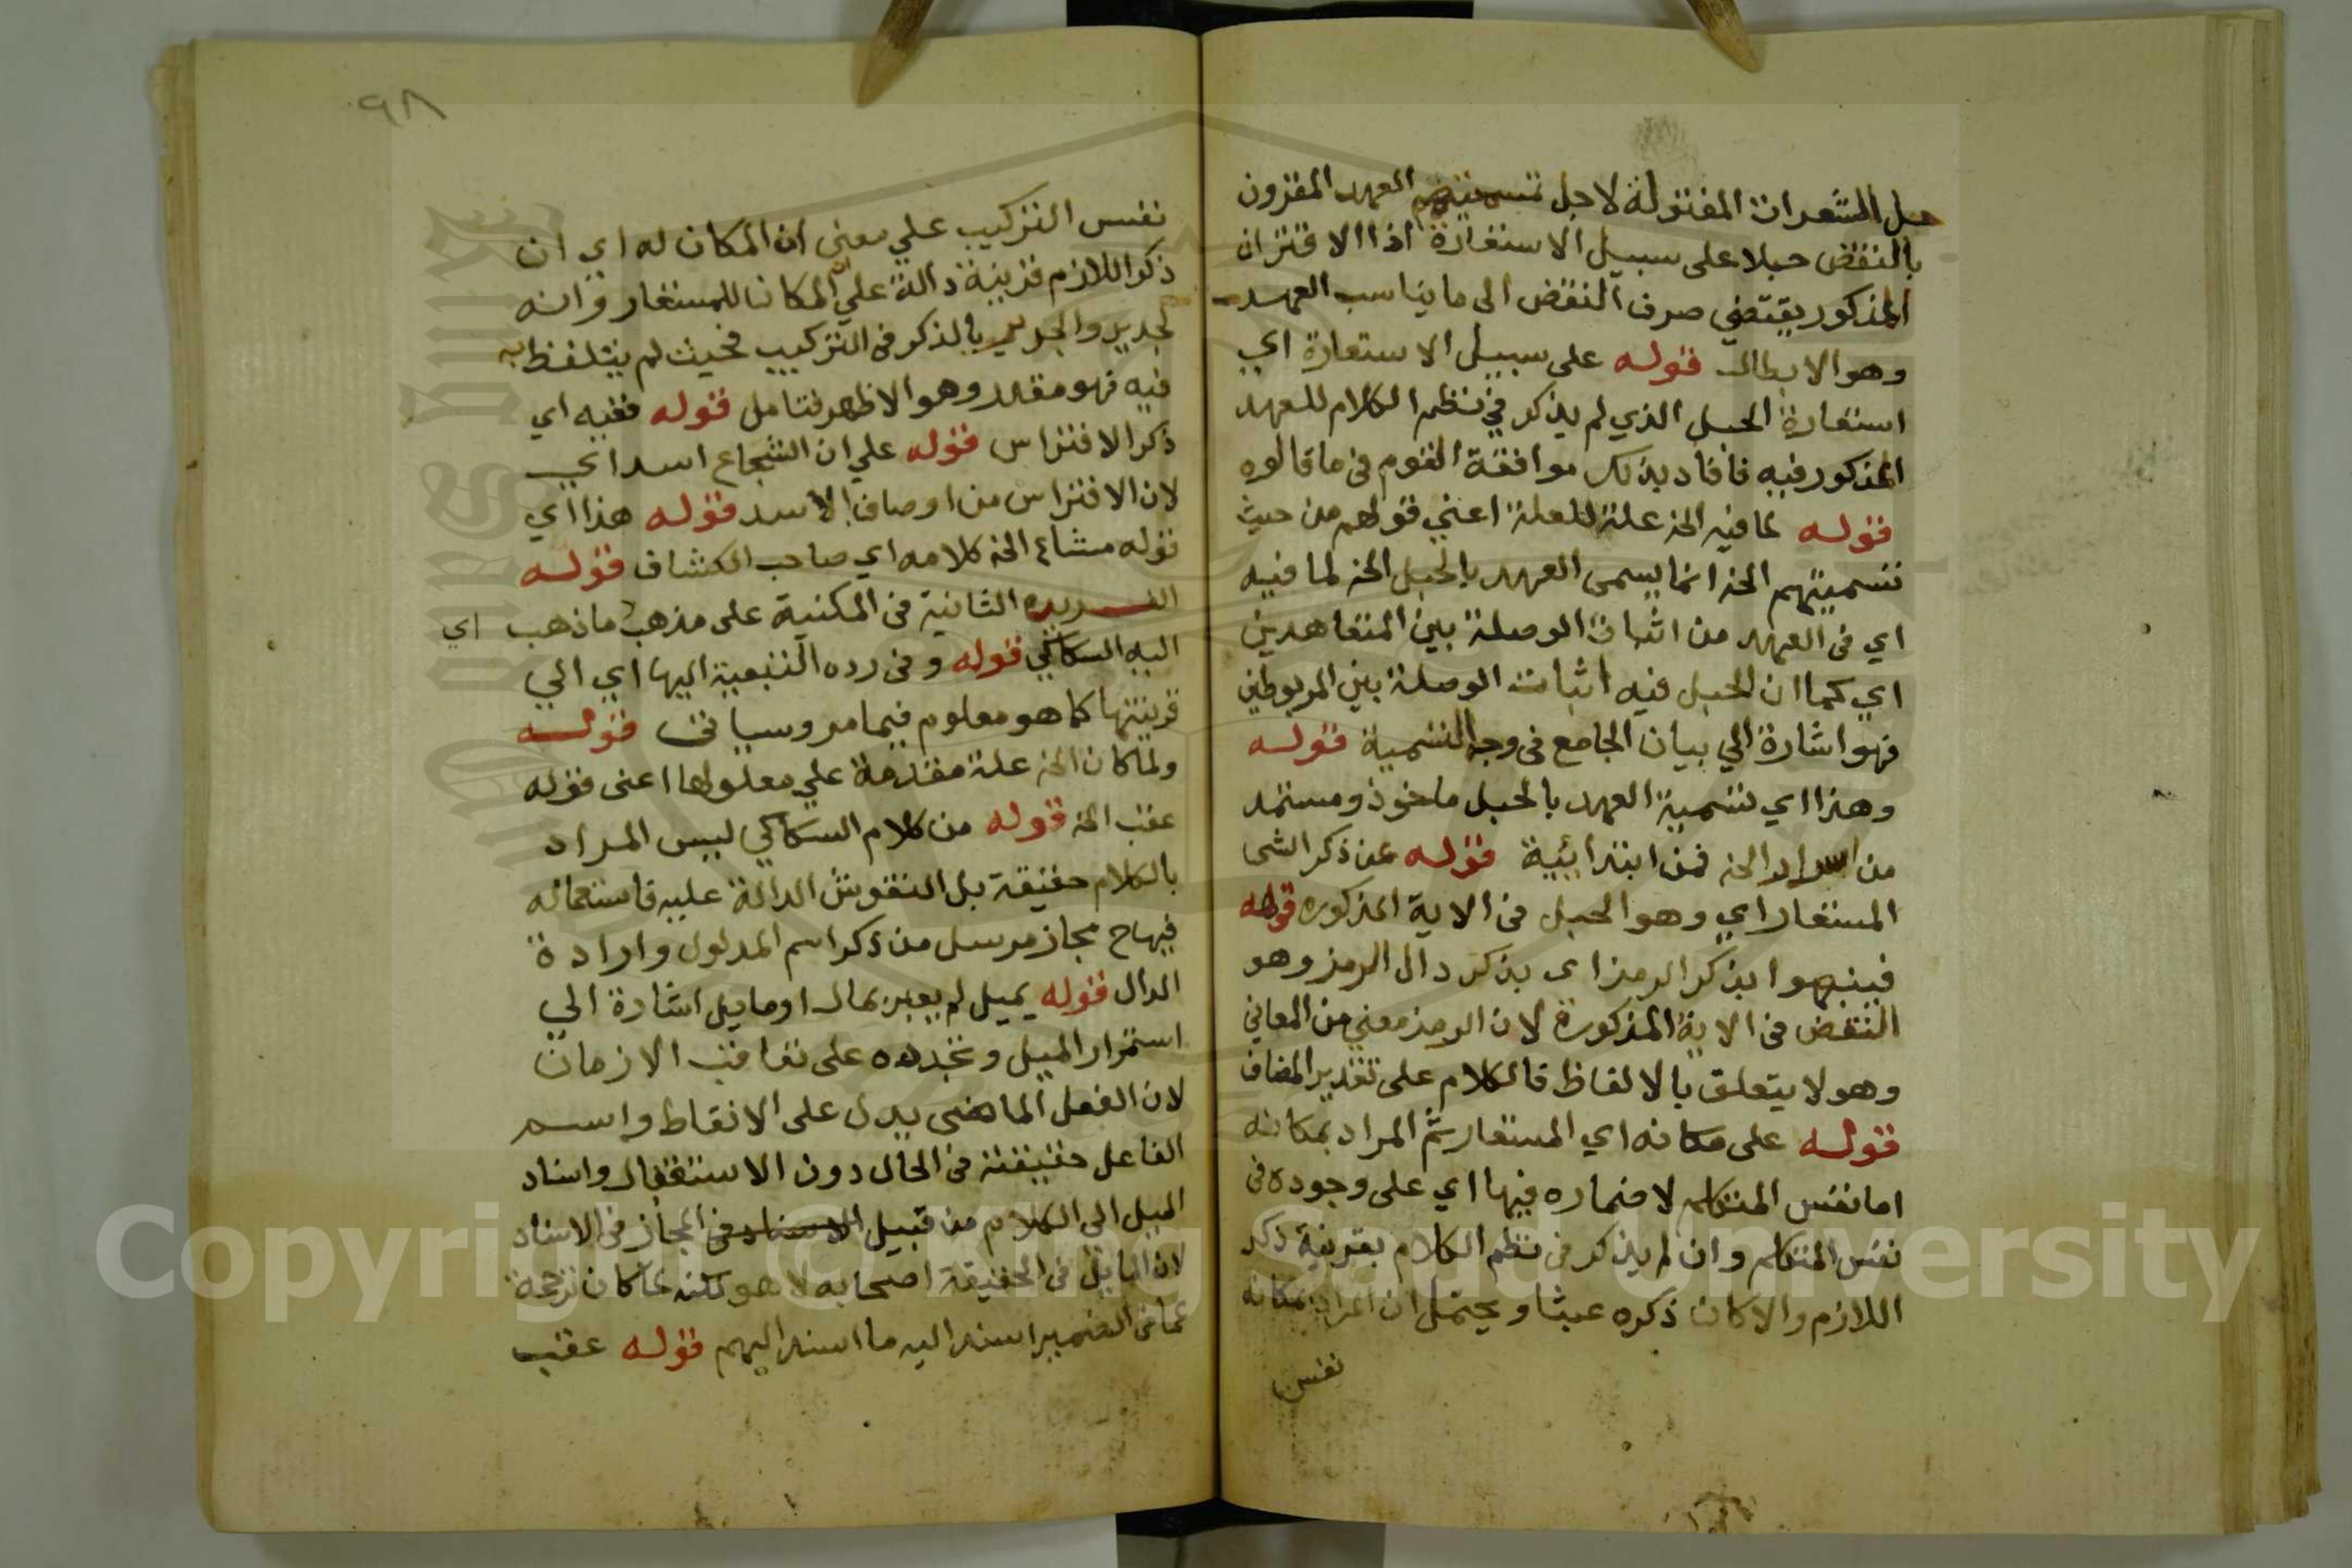 حبل الشعرات المفتولة لاجل تسميتهم العهد المقرون
بالنقض حبلا على سبيل الاستعارة اذ الاقتران
المذكور يقتضي صرف النقض الى ما يناسب العهد
وهو الابطال قوله على سبيل الاستعارة اي
استعارة الحبل الذي لم يذكر في نظم الكلام للعهد
المذكور فيه فافاد بذلك موافقة القوم في ما قالوه
قوله لما فيه الخ علة للعلة اعني قولهم من حيث
تسميتهم الخ انما يسمى العهد بالحبل الخ لما فيه
اي في العهد من اثبات الوصلة بين المتعاهدين
اي كما ان الحبل فيه اثبات الوصلة بين المربوطين
فهو اشارة الي بيان الجامع في وجه التسمية قوله
وهذا اي تسمية العهد بالحبل ماخوذ ومستمد
من اسرار الخ فمن ابتدائية قوله عن ذكر الشى
المستعار اي وهو الحبل في الاية المذكوره قوله
فينبهوا بذكر الرمز اى بذكر دال الرمز وهو
النقض في الاية المذكورة لان الرمز معني من المعاني
وهو لا يتعلق بالالفاظ فالكلام على تقدير المضاف
قوله على مكانه اي المستعار ثم المراد بمكانه
اما نفس المتكلم لاضماره فيها اي على وجوده في
نفس المتكلم وان لم يذكر في نظم الكلام بقرينة ذكر
اللازم والا كان ذكره عبثا ويحتمل ان المراد بمكانه
نفس
٩٨
نفس التركيب علي معنى ان المكان له اي ان
ذكر اللازم قرينة دالة علي ان المكان للمستعار وانه
لجدير والجدير بالذكر في التركيب فحيث لم يتلفظ به
فيه فهو مقدر وهو الاظهر فتامل قوله ففيه اي
ذكر الافتراس قوله علي ان الشجاع اسد اي
لان الافتراس من اوصاف الاسد قوله هذا اي
قوله مشاع الخ كلامه اي صاحب الكشاف قوله
الفريده الثانية في المكنية على مذهب ما ذهب اي
اليه السكاكي قوله وفي رده التبعية اليها اي الي
قرينتها كما هو معلوم فيما مر وسياتى قوله
ولما كان الخ علة مقدمة علي معلولها اعنى قوله
عقب الخ قوله من كلام السكاكي ليس المراد
بالكلام حقيقة بل النقوش الدالة عليه فاستعماله
فيها ح مجاز مرسل من ذكر اسم المدلول وارادة
الدال قوله يميل لم يعبر بمال او مايل اشارة الي
استمرار الميل وتجدده على تعاقب الازمان
لان الفعل الماضى يدل على الانقاط واسم
الفاعل حقيقته في الحال دون الاستقبال واسناد
الميل الى الكلام من قبيل المجاز في الاسناد
لان المايل في الحقيقة اصحابه لا هو لكنه لما كان ترجمة
عما في الضمير اسند اليه ما اسند اليهم قوله عقب